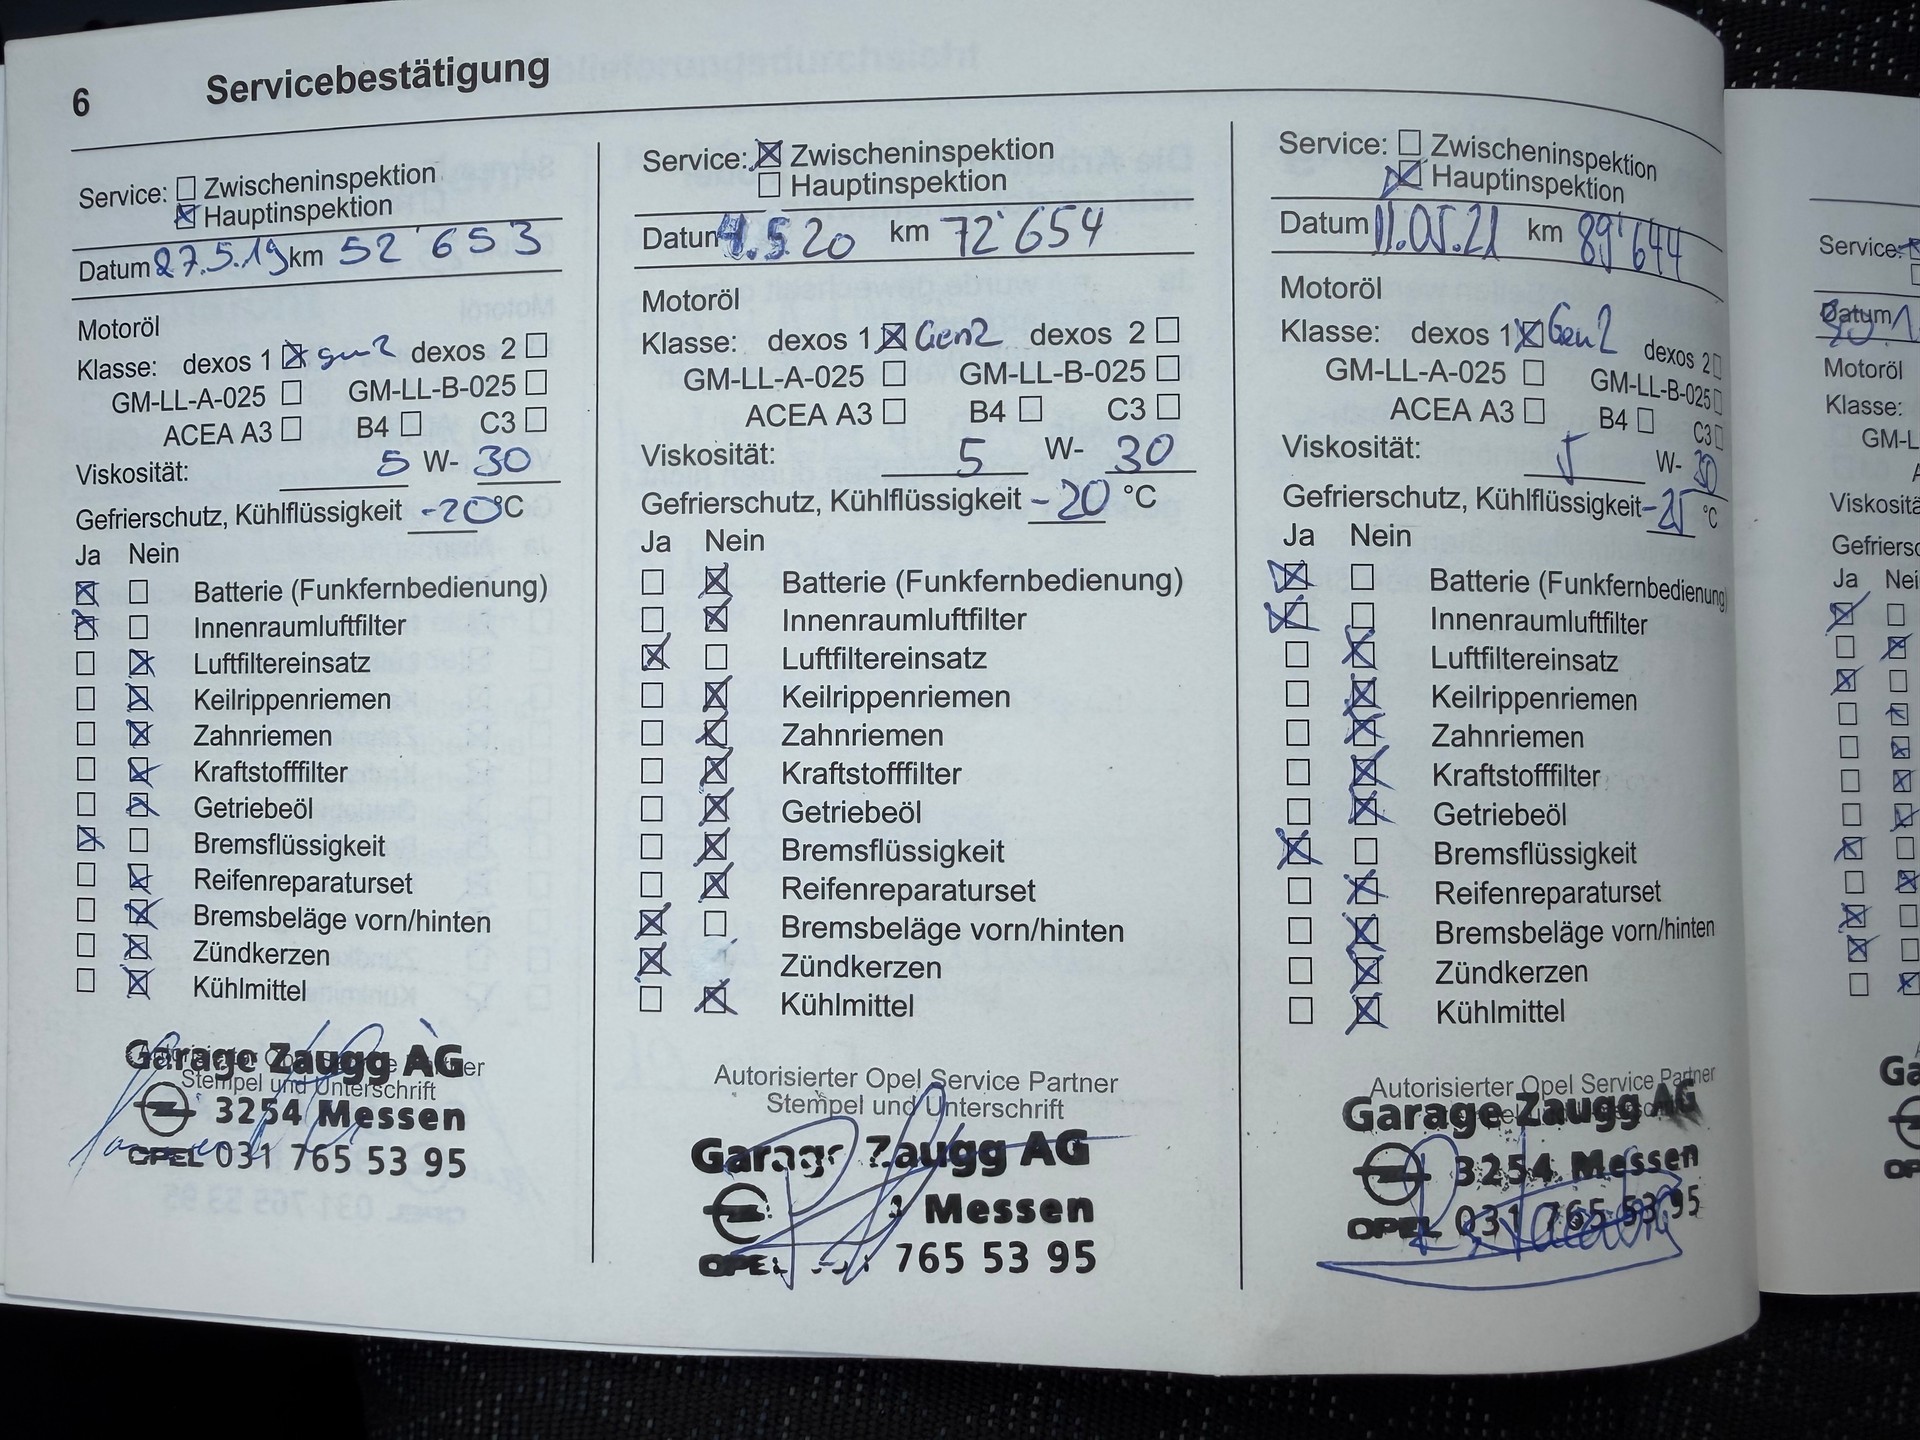 6 Servicebestätigung
Service: Zwischeninspektion
Hauptinspektion
Datum 27.5.19 km 52'653
Motoröl
Klasse: dexos 1 gen2 dexos 2
GM-LL-A-025 GM-LL-B-025
ACEA A3 B4 C3
Viskosität: 5 W- 30
Gefrierschutz, Kühlflüssigkeit -20 °C
Ja Nein
Batterie (Funkfernbedienung)
Innenraumluftfilter
Luftfiltereinsatz
Keilrippenriemen
Zahnriemen
Kraftstofffilter
Getriebeöl
Bremsflüssigkeit
Reifenreparaturset
Bremsbeläge vorn/hinten
Zündkerzen
Kühlmittel
Autorisierter Opel Service Partner
Garage Zaugg AG
Stempel und Unterschrift
3254 Messen
OPEL 031 765 53 95
Service: Zwischeninspektion
Hauptinspektion
Datum 4.5.20 km 72'654
Motoröl
Klasse: dexos 1 Gen2 dexos 2
GM-LL-A-025 GM-LL-B-025
ACEA A3 B4 C3
Viskosität: 5 W- 30
Gefrierschutz, Kühlflüssigkeit -20 °C
Ja Nein
Batterie (Funkfernbedienung)
Innenraumluftfilter
Luftfiltereinsatz
Keilrippenriemen
Zahnriemen
Kraftstofffilter
Getriebeöl
Bremsflüssigkeit
Reifenreparaturset
Bremsbeläge vorn/hinten
Zündkerzen
Kühlmittel
Autorisierter Opel Service Partner
Stempel und Unterschrift
Garage Zaugg AG
Messen
OPEL 765 53 95
Service: Zwischeninspektion
Hauptinspektion
Datum 11.05.21 km 89'644
Motoröl
Klasse: dexos 1 Gen2 dexos 2
GM-LL-A-025 GM-LL-B-025
ACEA A3 B4 C3
Viskosität: 5 W- 30
Gefrierschutz, Kühlflüssigkeit -25 °C
Ja Nein
Batterie (Funkfernbedienung)
Innenraumluftfilter
Luftfiltereinsatz
Keilrippenriemen
Zahnriemen
Kraftstofffilter
Getriebeöl
Bremsflüssigkeit
Reifenreparaturset
Bremsbeläge vorn/hinten
Zündkerzen
Kühlmittel
Autorisierter Opel Service Partner
Garage Zaugg AG
3254 Messen
OPEL 031 765 53 95
Service:
Datum
Motoröl
Klasse:
GM-L
A
Viskositä
Gefriersc
Ja Nei
Ga
OP